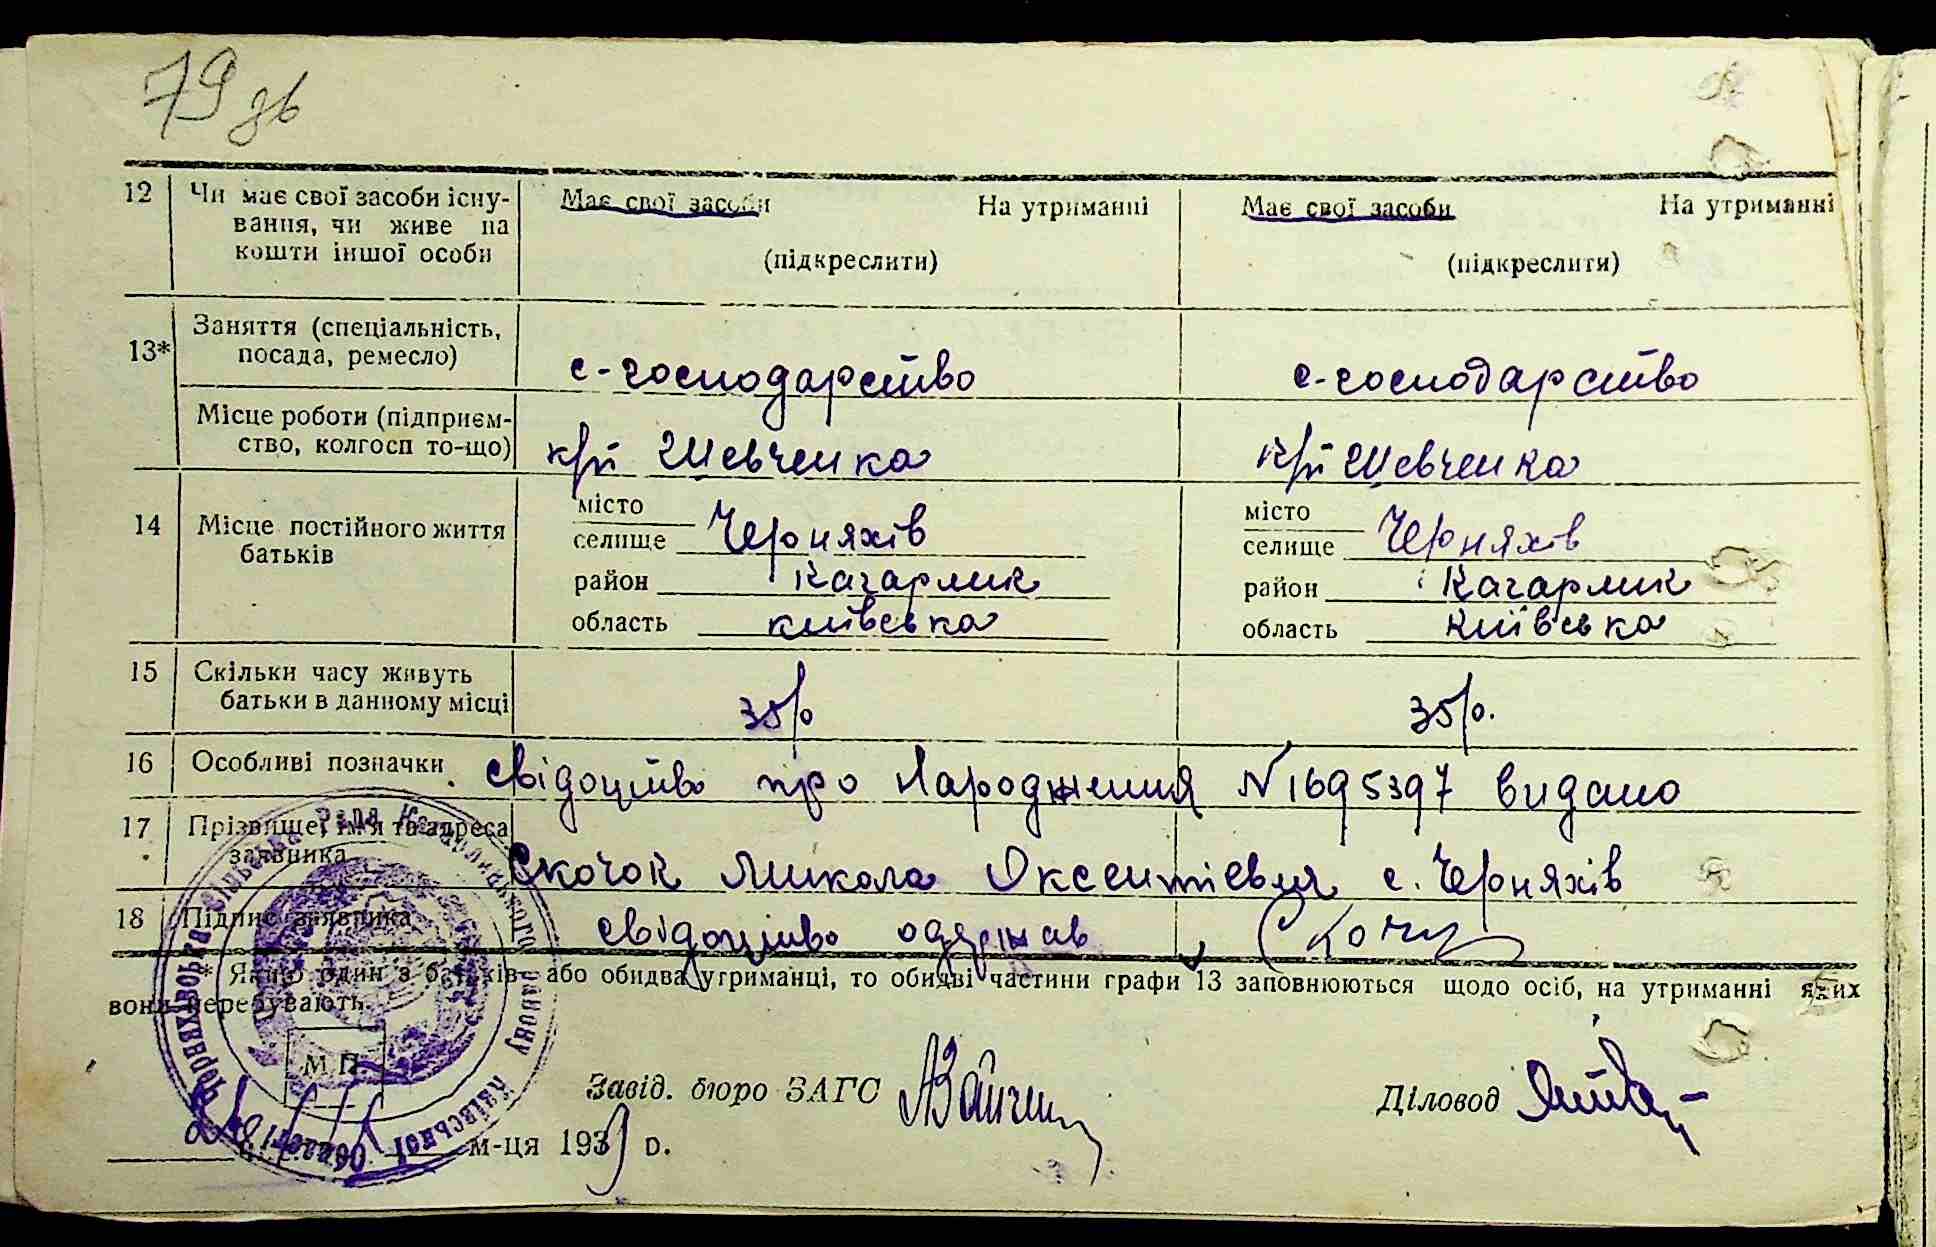 79 зв
12 Чи має свої засоби існу- Має свої засоби На утриманні Має свої засоби На утриманні
вання, чи живе на
кошти іншої особи (підкреслити) (підкреслити)
13* Заняття (спеціальність,
посада, ремесло) с-господарство с-господарство
Місце роботи (підприєм-
ство, колгосп то-що) Шевченка Шевченка
14 Місце постійного життя
батьків
місто місто
селище Черняхів селище Черняхів
район Кагарлик район Кагарлик
область київська область Київська
15 Скільки часу живуть
батьки в данному місці 35 р 35 р.
16 Особливі позначки свідоцтво про Народження N 1695397 видано
17 Прізвище, ім'я та адреса
заявника Скочок Микола Оксентієвич с. Черняхів
18 Підпис заявника свідоцтво одержав
* Якщо один з батьків або обидва утриманці, то обидві частини графи 13 заповнюються щодо осіб, на утриманні яких
вони перебувають.
М.П.
Завід. бюро ЗАГС Діловод
м-ця 1939 р.
Черняхівська Сільська Рада Кагарлицького району Київської області